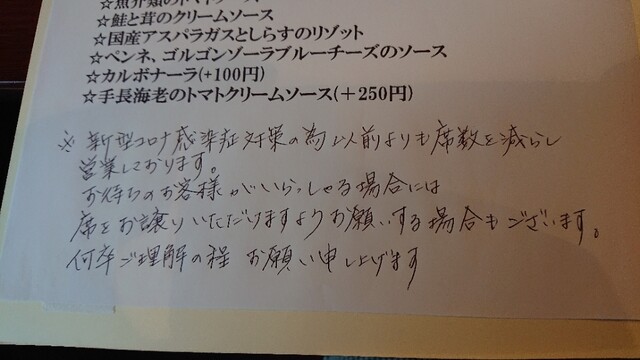 ☆魚介類のトマトソース
☆鮭と茸のクリームソース
☆国産アスパラガスとしらすのリゾット
☆ペンネ、ゴルゴンゾーラブルーチーズのソース
☆カルボナーラ(+100円)
☆手長海老のトマトクリームソース(＋250円)
※ 新型コロナ感染症対策の為以前よりも席数を減らし
営業しております。
お待ちのお客様がいらっしゃる場合には
席をお譲りいただけますようお願いする場合もございます。
何卒ご理解の程 お願い申し上げます